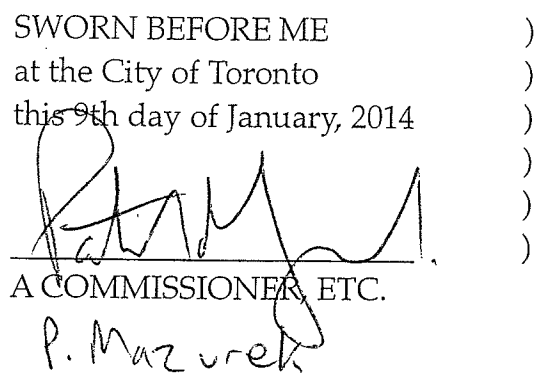 SWORN BEFORE ME )
at the City of Toronto )
this 9th day of January, 2014 )
)
)
)
A COMMISSIONER, ETC.
P. Mazurek